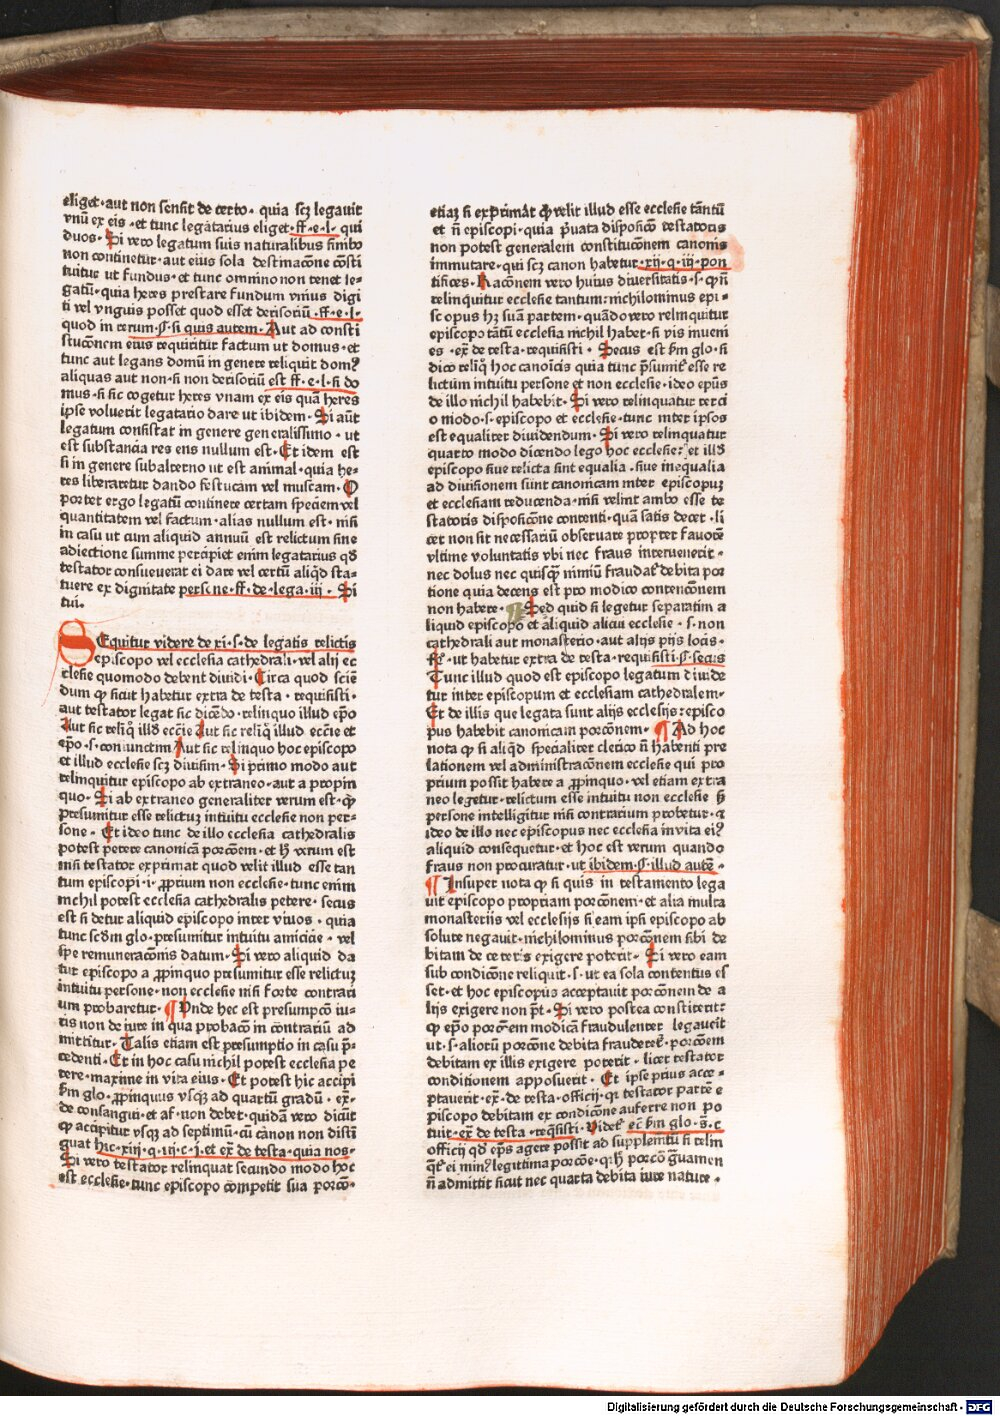 eliget·aut non sensit de certo· quia scꝫ legauit
vnū ex eis ·et tunc legatarius eliget·ff·e·l· qui
duos· Si vero legatum suis naturalibus finibꝰ
non continetur·aut eius sola destinacōne cōsti
tuitur ut fundus·et tunc omnino non tenet le-
gatū·quia heres prestare fundum vnius digi
ti vel vnguis posset quod esset derisoriū·ff·e·l·
quod in rerum·§·si quis autem· Aut ad consti
stucōnem eius requiritur factum ut domus·et
tunc aut legans domū in genere reliquit domꝰ
aliquas aut non·si non derisoriū est ff·e·l·si do
mus·si sic cogetur heres vnam ex eis quā heres
ipse voluerit legatario dare ut ibidem· Si aūt
legatum consistat in genere generalissimo·ut
est substancia res ens nullum est· Et idem est
si in genere subalterno ut est animal·quia he-
res liberaretur dando festucam vel muscam· O
portet ergo legatū continere certam speciem vel
quantitatem vel factum·alias nullum est·nisi
in casu ut cum aliquid annuū est relictum sine
adiectione summe percipiet enim legatarius qd̄
testator consueuerat ei dare vel certū aliqd̄ sta-
tuere ex dignitate persone·ff·de·lega·iij· Si
tui.
SEquitur videre de xi·s·de legatis relictis
episcopo vel ecclesia cathedrali·vel alij ec
clesie quomodo debent diuidi· Circa quod sciē
dum ꝙ sicut habetur extra de testa·requisisti·
aut testator legat sic dicēdo·relinquo illud ep̄o
Aut sic reliq̄ illd̄ ecc̄ie Aut sic reliq̄ illud ecc̄ie et
ep̄o·s·coniunctim Aut sic relinquo hoc episcopo
et illud ecclesie scꝫ diuisim· Si primo modo aut
relinquitur episcopo ab extraneo·aut a propin
quo· Si ab extraneo generaliter verum est·ꝙ
presumitur esse relictuꝫ intuitu ecclesie non per-
sone· Et ideo tunc de illo ecclesia cathedralis
potest petere canonicā porcōem·et h̄ verum est
nisi testator exprimat quod velit illud esse tan
tum episcopi·i·ꝓprium non ecclesie·tunc enim
nichil potest ecclesia cathedralis petere·secus
est si detur aliquid episcopo inter viuos·quia
tunc scd̄m glo·presumitur intuitu amicicie·vel
spe remuneracōnis datum· Si vero aliquid da
tur episcopo a ꝓpinquo presumitur esse relictuꝫ
intuitu persone·non ecclesie nisi forte contrari
um probaretur· ¶ Unde hec est presumpcō iu-
ris non de iure in qua probacō in contrariū ad
mittitur· Talis etiam est presumptio in casu p̄-
cedenti· Et in hoc casu nichil potest ecclesia pe
tere·maxime in vita eius· Et potest hic accipi
scd̄m glo·ꝓpinquus vsqꝫ ad quartū gradū·ex̄·
de consangui·et af·non debet·quidā vero dicūt
ꝙ accipitur vsqꝫ ad septimū·cū cānon non disti
guat hic·xiij·q·iij·c·j·et ex̄ de testa·quia nos·
Si vero testator relinquat secundo modo hoc
est ecclesie·tunc episcopo cōmpetit sua porcō·
etiaꝫ si exprimāt ꝙ velit illud esse ecclesie tātum
et n̄ episcopi·quia p̄uata disposicō testatoris
non potest generalem constitucōnem canonis
immutare·qui scꝫ canon habetur·xij·q·iij·pon
tifices· Racōnem vero huius diuersitatis·s·qn̄
relinquitur ecclesie tantum:nichilominus epi-
scopus hꝫ suā partem·quādo vero relinquitur
episcopo tātū ecclesia nichil habet·si vis inueni
es·ex̄ de testa·requisisti· Secus est scd̄m glo·si
dico reliq̄ hoc canoīcis quia tunc p̄sumit esse re
lictum intuitu persone et non ecclesie·ideo ep̄us
de illo nichil habebit· Si vero relinquatur terci
o modo·s·episcopo et ecclesie·tunc inter ipsos
est equaliter diuidendum· Si vero relinquatur
quarto modo dicendo lego hoc ecclesie:et illd̄
episcopo siue relicta sint equalia·siue inequalia
ad diuisionem sunt canonicam inter episcopuꝫ
et ecclesiam reducenda·nisi velint ambo esse te
statoris disposicōne contenti·quā satis decet·li
cet non sit necessariū obseruare propter fauorē
vltime voluntatis vbi nec fraus interuenerit·
nec dolus nec quisqꝫ nimiū fraudat debita por
tione quia decens est pro modico contencōnem
non habere· Sed quid si legetur separatim a
liquid episcopo et aliquid alicui ecclesie·s·non
cathedrali aut monasterio·aut alijs pijs locis·
ut habetur extra de testa·requisisti·§·secus
Tunc illud quod est episcopo legatum diuide
tur inter episcopum et ecclesiam cathedralem·
Et de illis que legata sunt alijs ecclesijs:episco
pus habebit canonicam porcōnem· ¶ Ad hoc
nota ꝙ si aliqd̄ specialiter clerico n̄ habenti pre
lationem vel administracōnem ecclesie qui pro
prium possit habere a ꝓpinquo·vel etiam extra
neo legetur·relictum esse intuitu non ecclesie s̄
persone intelligitur nisi contrarium probetur·⁊
ideo de illo nec episcopus nec ecclesia inuita eiꝰ
aliquid consequetur·et hoc est verum quando
fraus non procuratur·ut ibidem·§·illud autē·
¶ Insuper nota ꝙ si quis in testamento lega
uit episcopo propriam porcōnem·et alia multa
monasterijs vel ecclesijs si eam ipsi episcopo ab
solute negauit·nichilominus porcōnem sibi de
bitam de ceteris exigere poterit· Si vero eam
sub condicōne reliquit·s·ut ea sola contentus es
set·et hoc episcopus acceptauit porcōnem de a
lijs exigere non p̄t· Si vero postea constiterit:
ꝙ ep̄o porcōem modicā fraudulenter legauerit
ut·s·aliorū porcōne debita fraudaret·porcōem
debitam ex illis exigere poterit·licet testator
conditionem apposuerit· Et ipse prius acce-
ptauerit·ex̄·de testa·officij·qꝫ testator partē e
piscopo debitam ex condicōne auferre non po
tuit·ex̄ de testa·reqsisti· Videt ec̄ scd̄m glo·s̄·c
officij qd̄ ep̄s agere possit ad supplemtū si relin
qt̄ ei minꝰ legittima porcōe·qꝫ h̄ porcō gͣuamen
n̄ admittit sicut nec quarta debita iure nature·
Digitalisierung gefördert durch die Deutsche Forschungsgemeinschaft - DFG